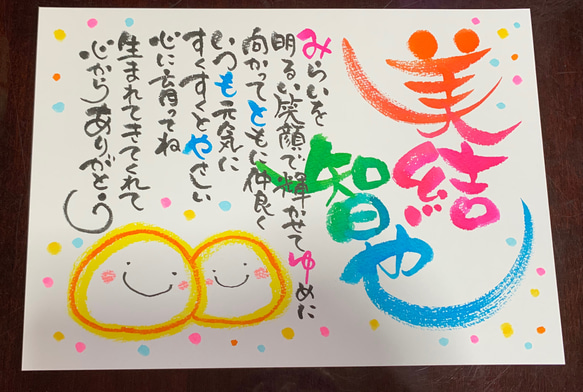 美結
智や
みらいを
明るい笑顔で輝かせてゆめに
向かってともに仲良く
いつも元気に
すくすくとやさしい
心に育ってね
生まれてきてくれて
心からありがとう